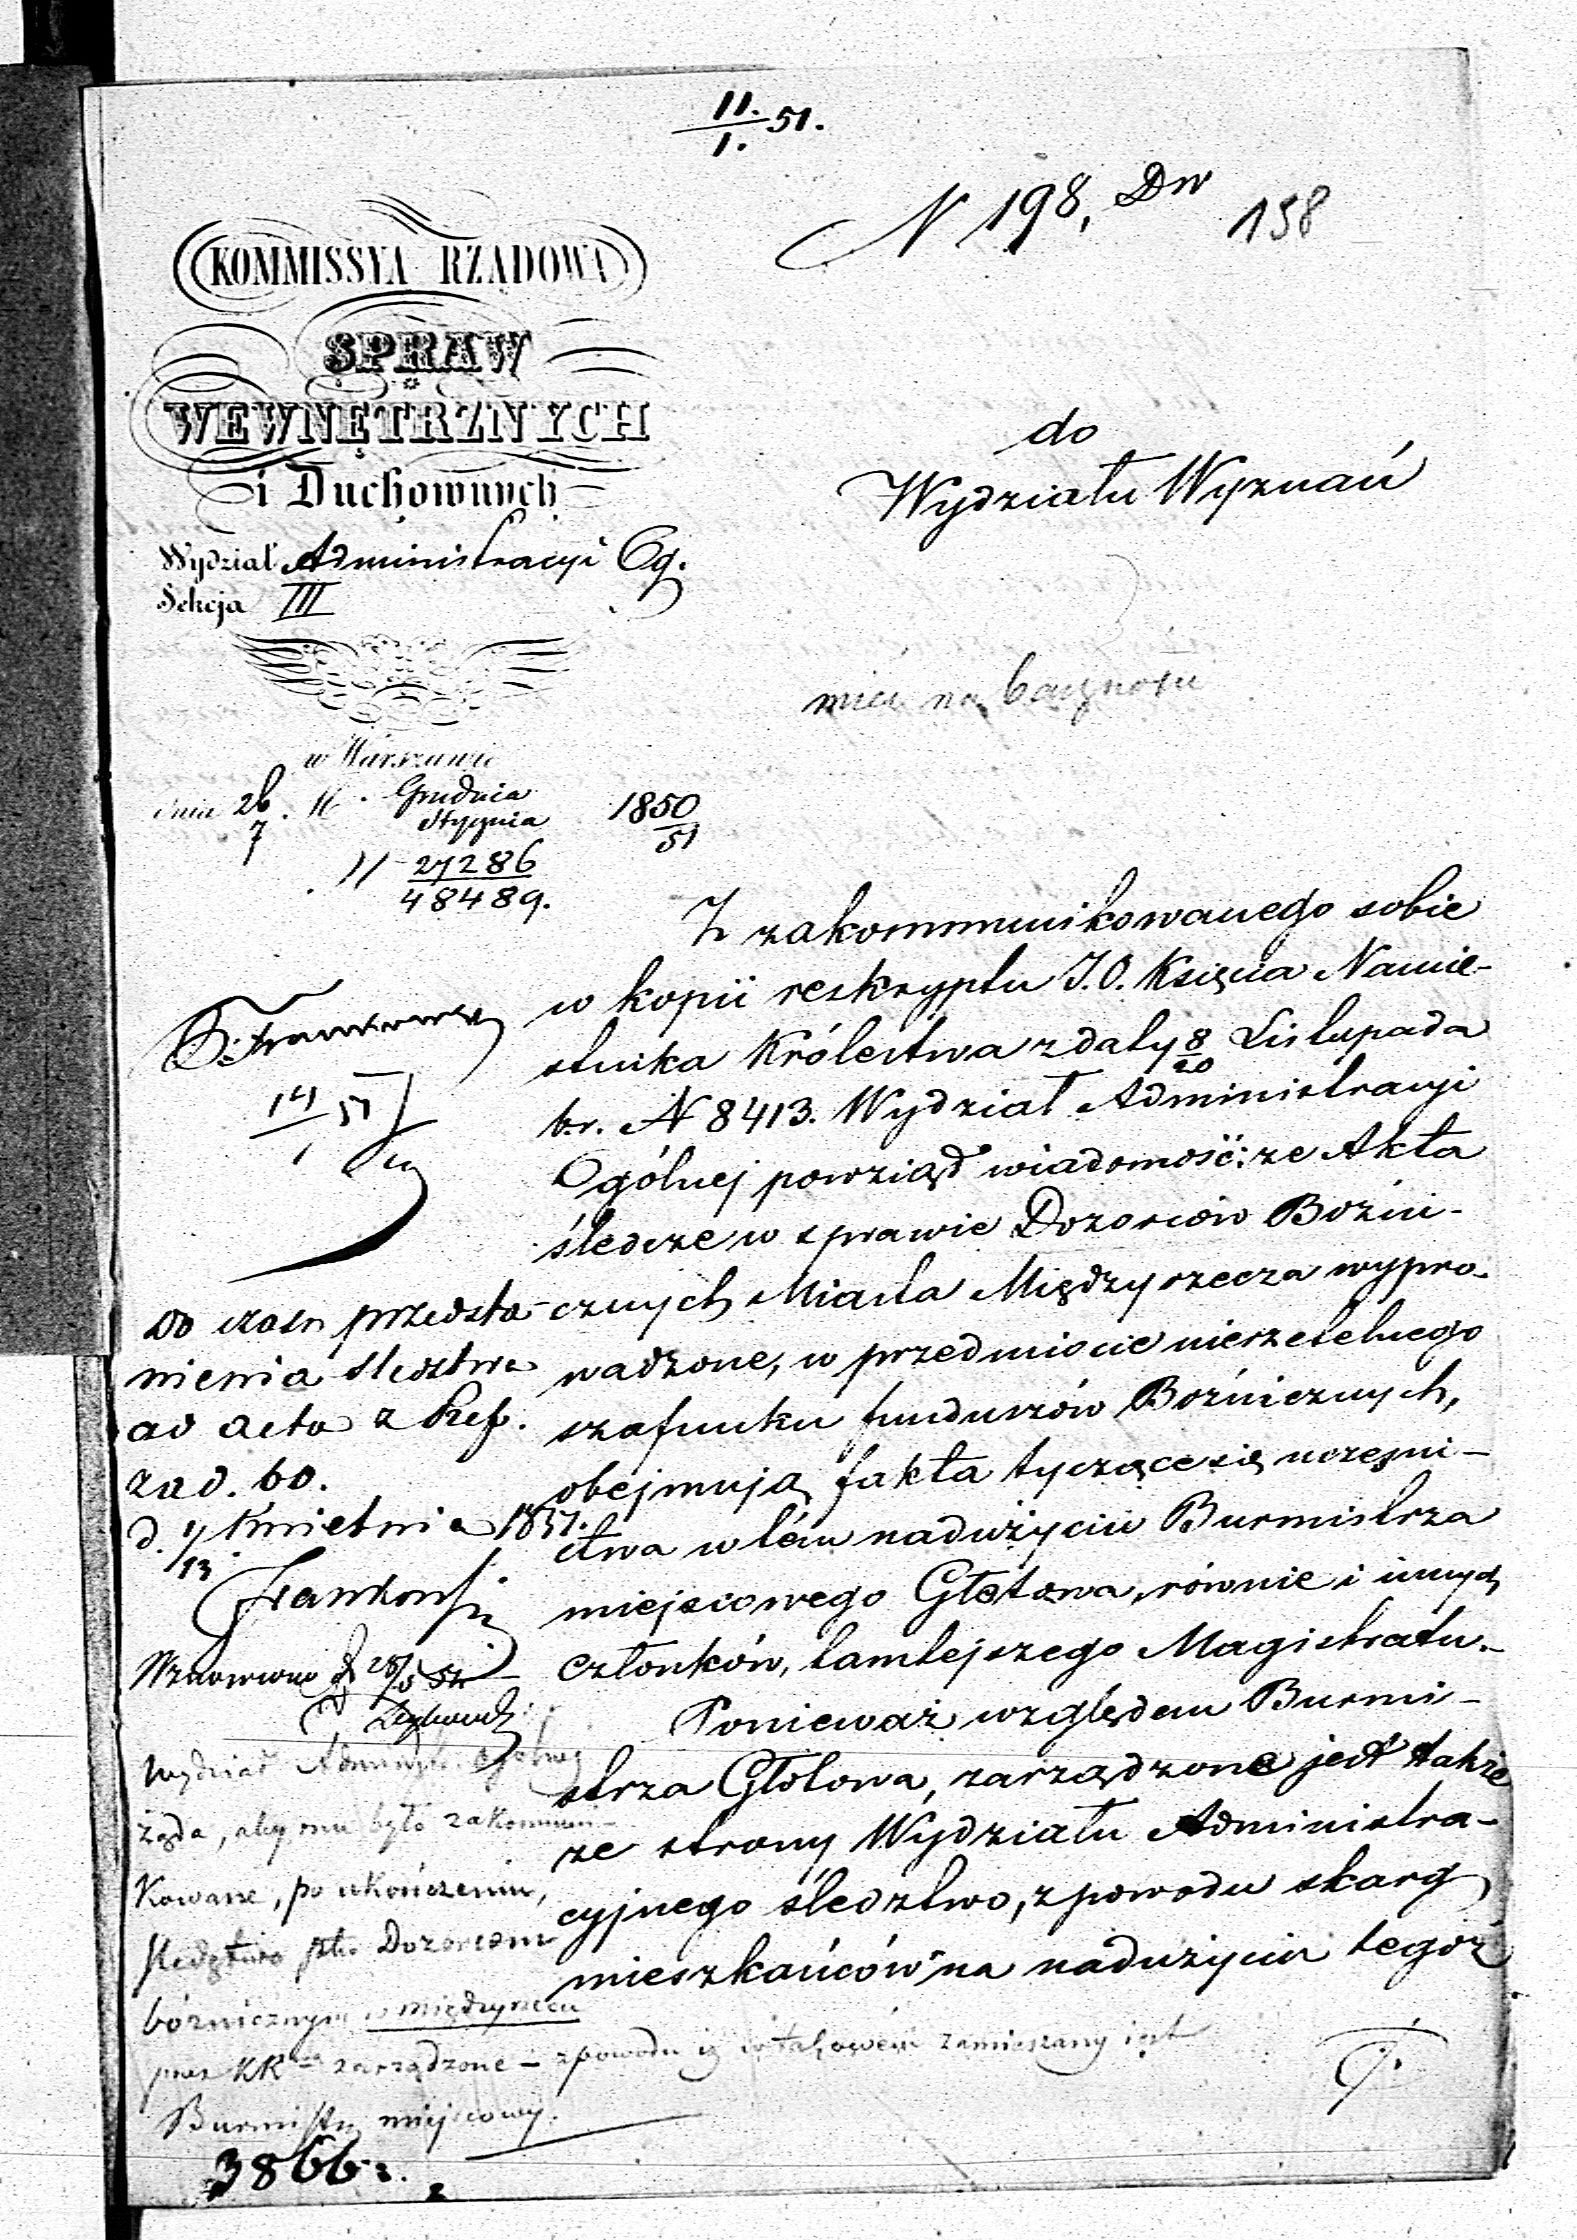 11./1. 51.
N 198, Dw
158
KOMMISSYA RZĄDOWA
SPRAW
WEWNĘTRZNYCH
i Duchownych
Wydział Administracyi Og.
Sekcja III
do
Wydziału Wyznań
mieć na baczności
w Warszawie
dnia 26/7 Grudnia/Stycznia 1850/51
N 27286/48489.
Z zakommunikowanego sobie
w kopii reskryptu J.O. Księcia Namie-
stnika Królestwa z daty 8/20 Listopada
b.r. N 8413. Wydział Administracyi
Ogólnej powziął wiadomość: że Akta
śledcze w sprawie Dozorców Bożni-
cznych Miasta Międzyrzecza wypro-
wadzone, w przedmiocie nierzetelnego
szafunku funduszów Bożnicznych,
obejmują fakta tyczące się uczęstni-
ctwa w tém nadużyciu Burmistrza
miejscowego Głotowa, równie i innych
członków, tamtejszego Magistratu.-
Ponieważ względem Burmi-
strza Głotowa, zarządzone jest także
ze strony Wydziału Administra-
cyjnego śledztwo, z powodu skarg
mieszkańców na nadużycia tegoż
14/1 51
Do czasu przedsta-
wienia śledztwa
ad acta z Ref.
za d. 60.
d. 1/13 Kwietnia 1851.
Wznowiono
Wydział Administr. Ogólnej
żąda, aby mu było zakommuni-
kowane, po ukończeniu,
śledztwo pko Dozorcom
bóżnicznym w Międzyrzecu
przez KR zarządzone – z powodu iż w takowém zamieszany jest
Burmistrz miejscowy.
3866.